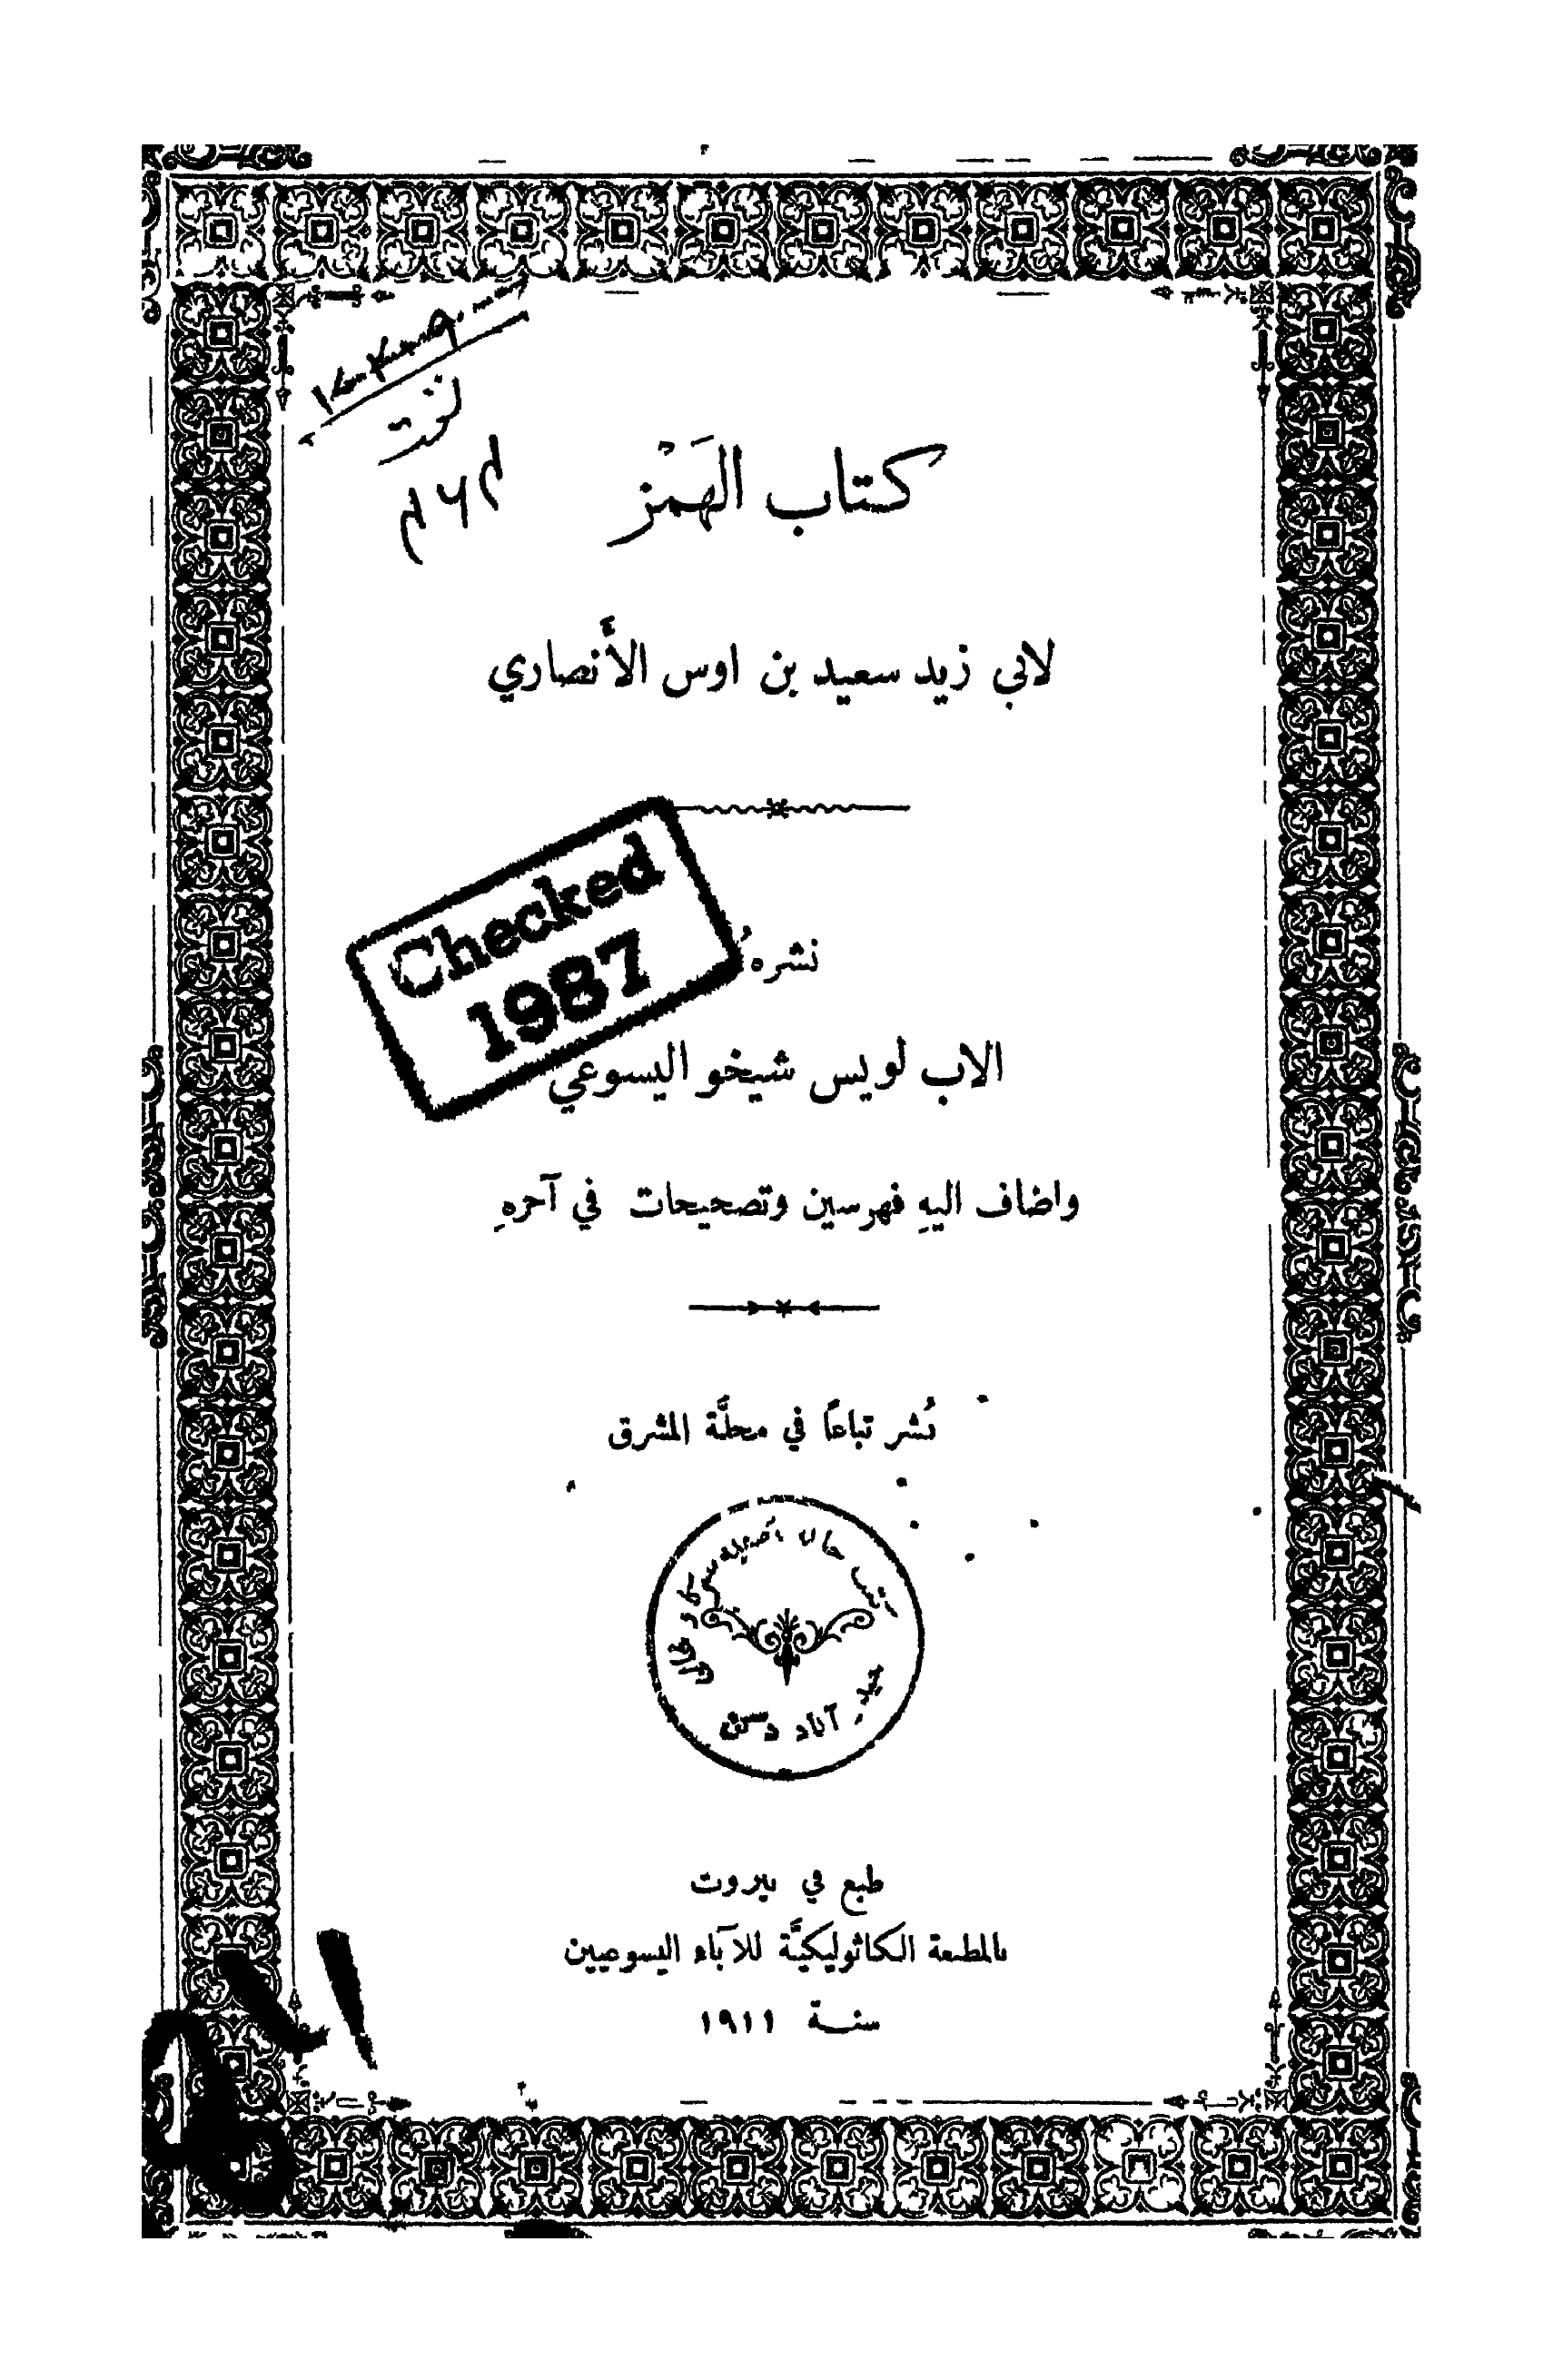 لغت
كتاب الهَمْز
لابي زيد سعيد بن اوس الأنصاري
Checked
1987
نشرهُ
الاب لويس شيخو اليسوعي
واضاف اليهِ فهرسين وتصحيحات في آخرهِ
نُشر تباعاً في مجلَّة المشرق
حيدرآباد دكن
طبع في بيروت
بالمطبعة الكاثوليكيَّة للآباء اليسوعيين
سنة ١٩١١